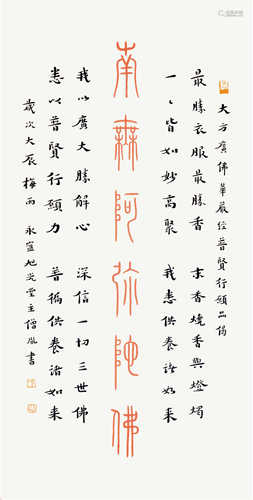 大方廣佛華嚴經普賢行願品偈
最勝衣服最勝香 末香燒香與燈燭
一々皆如妙高聚 我悉供養諸如来
南無阿弥陀佛
我以廣大勝解心 深信一切三世佛
悉以普賢行願力 普徧供養諸如来
歲次大辰梅雨 永 堂主僧 書